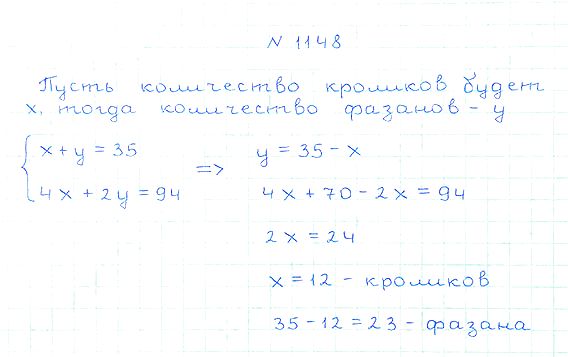 N 1148
Пусть количество кроликов будет
x, тогда количество фазанов - y
x + y = 35 => y = 35 - x
4x + 2y = 94
4x + 70 - 2x = 94
2x = 24
x = 12 - кроликов
35 - 12 = 23 - фазана